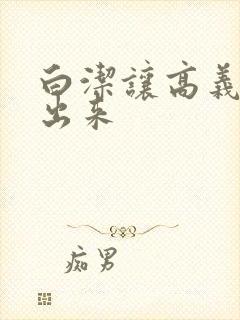 白潔讓高義
出来
痴男